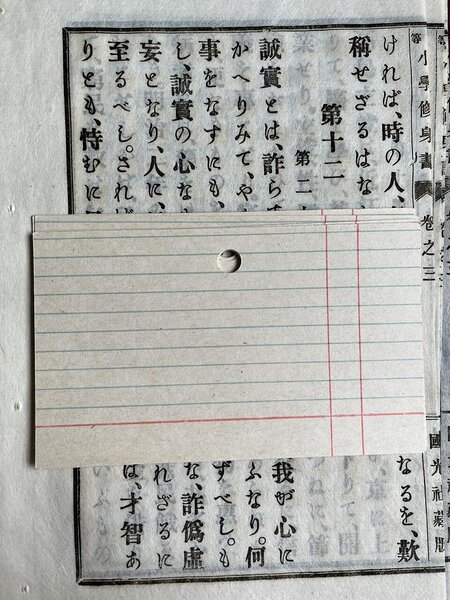 等小學修身書 卷之三 國光社藏版
ければ、時の人、 なるを、歎
稱せざるはな
第十二
第二
誠實とは、詐ら 我が心に
かへりみて、や ふなり。何
事をなすにも、 ずべし。も
し、誠實の心な な、詐僞虛
妄となり、人に、 れざるに
至るべし。されば は、才智あ
りとも、恃むに